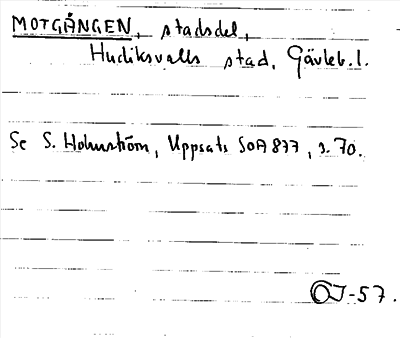 MOTGÅNGEN, stadsdel,
Hudiksvalls stad, Gävleb. l.
Se S. Holmström, Uppsats SOA 877, s. 70.
OJ-57.